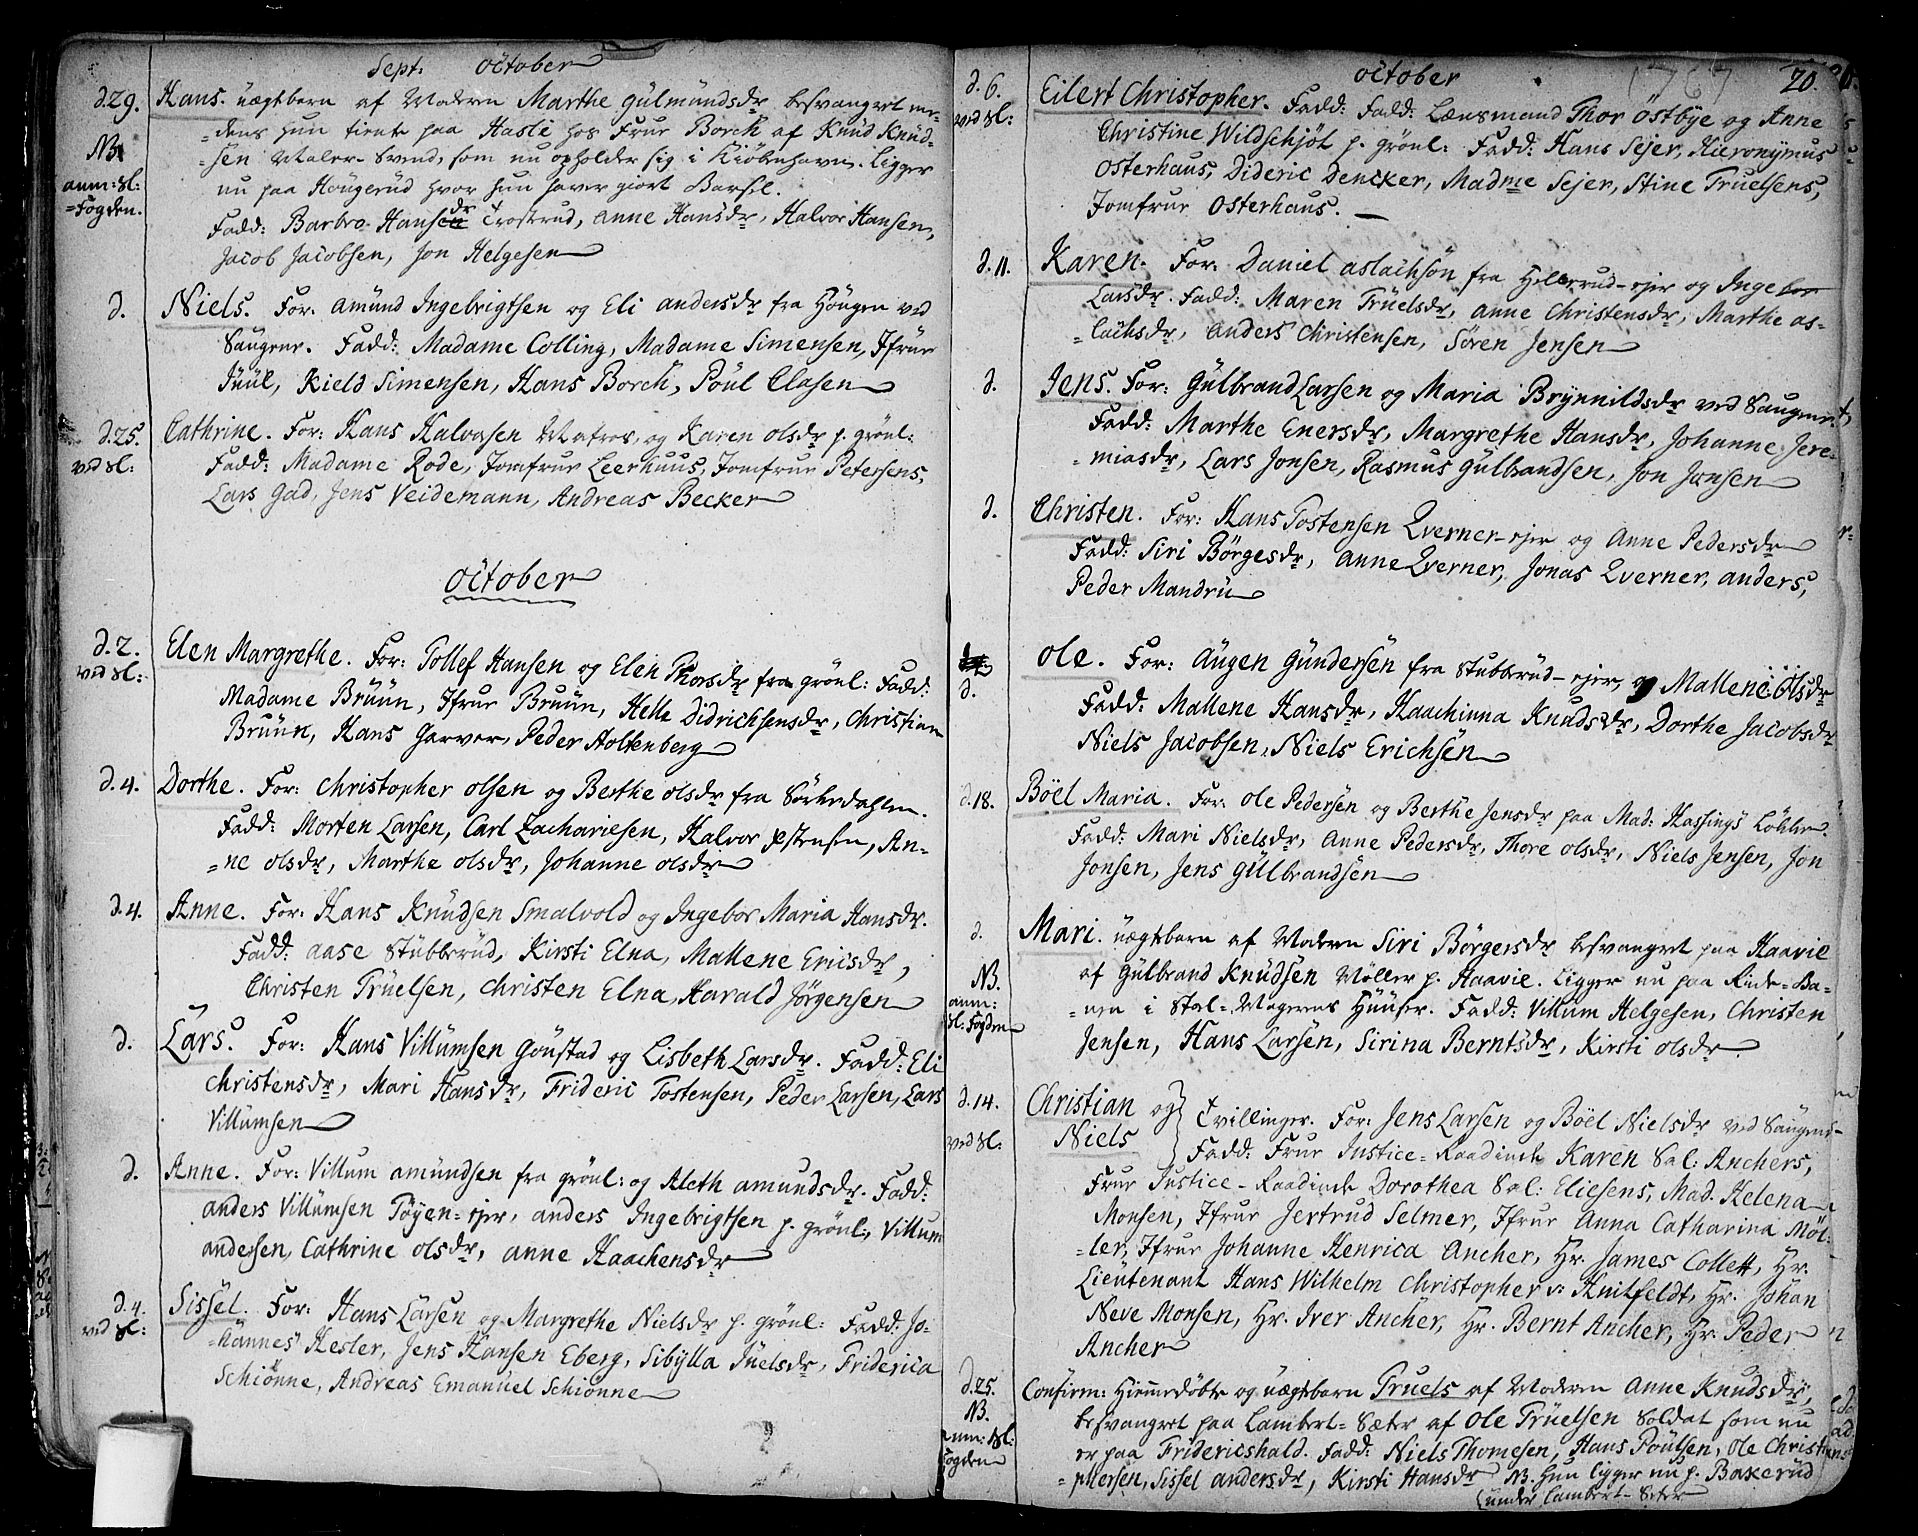 Sept. October
d.29. Hans. uægtbarn af Moderen Marthe Gulmundsdr besvangret me-
=dens hun tiente paa Hasle hos Frue Borch af Knud Knud-
NB =sen Maler-Svend, som nu opholder sig i Kiøbenhavn. Ligger
anm: Sl: nu paa Hougerud hvor hun haver giort Barsel.
=Fogden. Fadd: Barbro Hansdr Trostrud, Anne Hansdr, Halvor Hansen,
Jacob Jacobsen, Jon Helgesen
d. Niels. For: Amund Ingebrigtsen og Eli Andersdr fra Hougen ved
Saugene. Fadd: Madame Colling, Madame Simensen, Jfrue
Juul, Kield Simensen, Hans Borch, Poul Clasen
d.25. Cathrine. For: Hans Halvorsen Matros, og Karen Olsdr p. Grønl:
ved Sl: Fadd: Madame Rode, Jomfrue Leerhuus, Jomfrue Petersens,
Lars Gad, Jens Veidemann, Andreas Becker
October
d.2. Elen Margrethe. For: Tollef Hansen og Elen Thorsdr fra Grønl: Fadd:
ved Sl: Madame Bruun, Jfrue Bruun, Helle Didrichsensdr, Christian
Bruun, Hans Garver, Peder Holtenberg
d.4. Dorthe. For: Christopher Olsen og Berthe Olsdr fra Sørkedahlen.
Fadd: Morten Larsen, Carl Zachariesen, Halvor Estensen, An-
=ne Olsdr, Marthe Olsdr, Johanne Olsdr
d.4. Anne. For: Hans Knudsen Smalvold og Ingebor Maria Hansdr.
Fadd: Aase Stubberud, Kirsti Elna, Mallene Ericsdr,
Christen Truelsen, Christen Elna, Harald Jørgensen
d. Lars. For: Hans Villumsen Goustad og Lisbeth Larsdr. Fadd: Eli
Christensdr, Mari Hansdr, Frideric Tostensen, Peder Larsen, Lars
Villumsen
d. Anne. For: Villum Amundsen fra Grønl: og Aleth Amundsdr. Fadd:
Anders Villumsen Tøyen-ejer, Anders Ingebrigtsen p. Grønl:, Villum
Andersen, Cathrine Olsdr, Anne Haachensdr
d.4. Sissel. For: Hans Larsen og Margrethe Nielsdr p. Grønl: Fadd: Jo-
ved Sl: =hannes Hesler, Jens Hansen Eberg, Sibylla Juelsdr, Friderica
Schiønne, Andreas Emanuel Schiønne
October 1767 20.
d.6. Eilert Christopher. Fadd: Fadd: Lænsmand Thor Østbye og Anne
ved Sl: Christine Wildschjøt p. Grønl: Fadd: Hans Sejer, Hieronymus
Osterhaus, Dideric Dencker, Madme Sejer, Stine Truelsens,
Jomfrue Osterhaus.
d.11. Karen. For: Daniel Aslachsøn fra Hellerud-ejer og Ingebor
Larsdr. Fadd: Maren Truelsdr, Anne Christensdr, Marthe As-
=lachsdr, Anders Christensen, Søren Jensen
d. Jens. For: Gulbrand Larsen og Maria Brynnildsdr ved Saugene.
Fadd: Marthe Enersdr, Margrethe Hansdr, Johanne Jere-
=miasdr, Lars Jonsen, Rasmus Gulbrandsen, Jon Jonsen
d. Christen. For: Hans Tostensen Qverner-ejer og Anne Pedersdr
Fadd: Siri Børgesdr, Anne Qverner, Jonas Qverner, Anders,
Peder Mandru
d. Ole. For: Augen Gundersen fra Stubberud-ejer, og Mallene Olsdr
Fadd: Mallene Hansdr, Haachinna Knudsdr, Dorthe Jacobsdr
Niels Jacobsen, Niels Erichsen
d.18. Böel Maria. For: Ole Pedersen og Berthe Jensdr paa Mad: Hassings Løkke.
Fadd: Mari Nielsdr, Anne Pedersdr, Thore Olsdr, Niels Jensen, Jon
Jonsen, Jens Gulbrandsen
d. Mari. uægtbarn af Moderen Siri Børgersdr besvangret paa Haavie
NB. af Gulbrand Knudsen Møller p. Haavie. Ligger nu paa Ride-Ba-
anm: =nen i Stal-Magerens Huuser. Fadd: Villum Helgesen, Christen
Sl: Fogden Jensen, Hans Larsen, Sirina Berntsdr, Kirsti Olsdr.
d.14. Christian og Niels } Tvillinger. For: Jens Larsen og Böel Nielsdr ved Saugene
ved Sl: Fadd: Frue Justice-Raadinde Karen Sal: Anchers,
Frue Justice-Raadinde Dorothea Sal: Eliesens, Mad. Helena
Monsen, Jfrue Jertrud Selmer, Jfrue Anna Catharina Møl-
=ler, Jfrue Johanne Henrica Ancher, Hr. James Collett, Hr.
Lieutenant Hans Wilhelm Christopher v: Hnitfeldt, Hr. Johan
Neve Monsen, Hr. Iver Ancher, Hr. Bernt Ancher, Hr. Peder
Ancher
d.25. Confirm: Hiemmedøbte og uægtbarn Truels af Moderen Anne Knudsdr,
NB. besvangret paa Lambert-Sæter af Ole Truelsen Soldat som nu
anm: Sl: er paa Fridericshald. Fadd: Niels Thomesen, Hans Poulsen, Ole Christo-
Fogden =phersen, Sissel Andersdr, Kirsti Hansdr NB. Hun ligger nu p. Bakerud
under Lambert-Seter